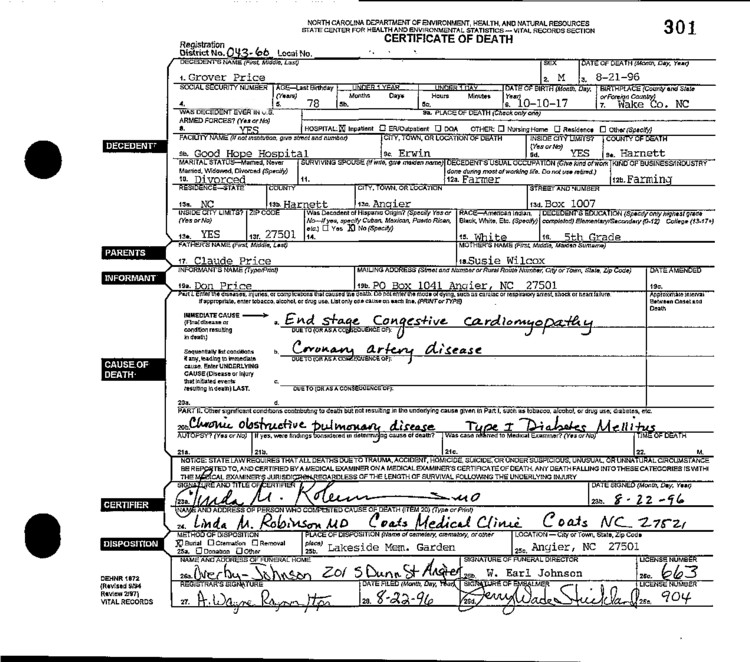 NORTH CAROLINA DEPARTMENT OF ENVIRONMENT, HEALTH, AND NATURAL RESOURCES
STATE CENTER FOR HEALTH AND ENVIRONMENTAL STATISTICS — VITAL RECORDS SECTION
CERTIFICATE OF DEATH
301
Registration
District No. 043-66 Local No.
DECEDENT'S NAME (First, Middle, Last) SEX DATE OF DEATH (Month, Day, Year)
1. Grover Price 2. M 3. 8-21-96
SOCIAL SECURITY NUMBER AGE—Last Birthday (Years) UNDER 1 YEAR UNDER 1 DAY DATE OF BIRTH (Month, Day, Year) BIRTHPLACE (County and State or Foreign Country)
Months Days Hours Minutes
4. 5. 78 5b. 5c. 6. 10-10-17 7. Wake Co. NC
WAS DECEDENT EVER IN U.S. ARMED FORCES? (Yes or No) 9a. PLACE OF DEATH (Check only one)
8. YES HOSPITAL: ☒ Inpatient ☐ ER/Outpatient ☐ DOA OTHER: ☐ Nursing Home ☐ Residence ☐ Other (Specify)
FACILITY NAME (If not institution, give street and number) CITY, TOWN, OR LOCATION OF DEATH INSIDE CITY LIMITS? (Yes or No) COUNTY OF DEATH
9b. Good Hope Hospital 9c. Erwin 9d. YES 9e. Harnett
DECEDENT
MARITAL STATUS—Married, Never Married, Widowed, Divorced (Specify) SURVIVING SPOUSE (If wife, give maiden name) DECEDENT'S USUAL OCCUPATION (Give kind of work done during most of working life. Do not use retired.) KIND OF BUSINESS/INDUSTRY
10. Divorced 11. 12a. Farmer 12b. Farming
RESIDENCE—STATE COUNTY CITY, TOWN, OR LOCATION STREET AND NUMBER
13a. NC 13b. Harnett 13c. Angier 13d. Box 1007
INSIDE CITY LIMITS? (Yes or No) ZIP CODE Was Decedent of Hispanic Origin? (Specify Yes or No—If yes, specify Cuban, Mexican, Puerto Rican, etc.) ☐ Yes ☒ No (Specify) RACE—American Indian, Black, White, Etc. (Specify) DECEDENT'S EDUCATION (Specify only highest grade completed) Elementary/Secondary (0-12) College (13-17+)
13e. YES 13f. 27501 14. 15. White 16. 5th Grade
PARENTS
FATHER'S NAME (First, Middle, Last) MOTHER'S NAME (First, Middle, Maiden Surname)
17. Claude Price 18. Susie Wilcox
INFORMANT
INFORMANT'S NAME (Type/Print) MAILING ADDRESS (Street and Number or Rural Route Number, City or Town, State, Zip Code) DATE AMENDED
19a. Don Price 19b. PO Box 1041 Angier, NC 27501 19c.
Part I. Enter the diseases, injuries, or complications that caused the death. Do not enter the mode of dying, such as cardiac or respiratory arrest, shock or heart failure.
If appropriate, enter tobacco, alcohol, or drug use. List only one cause on each line. (PRINT or TYPE)
Approximate Interval Between Onset and Death
IMMEDIATE CAUSE (Final disease or condition resulting in death)
a. End stage Congestive cardiomyopathy
DUE TO (OR AS A CONSEQUENCE OF):
CAUSE OF DEATH
Sequentially list conditions if any, leading to immediate cause. Enter UNDERLYING CAUSE (Disease or injury that initiated events resulting in death) LAST.
b. Coronary artery disease
DUE TO (OR AS A CONSEQUENCE OF):
c.
DUE TO (OR AS A CONSEQUENCE OF):
20a. d.
PART II. Other significant conditions contributing to death but not resulting in the underlying cause given in Part I, such as tobacco, alcohol, or drug use, diabetes, etc.
20b. Chronic obstructive pulmonary disease Type I Diabetes Mellitus
AUTOPSY? (Yes or No) If yes, were findings considered in determining cause of death? Was case referred to Medical Examiner? (Yes or No) TIME OF DEATH
21a. 21b. 21c. 22. M.
NOTICE: STATE LAW REQUIRES THAT ALL DEATHS DUE TO TRAUMA, ACCIDENT, HOMICIDE, SUICIDE, OR UNDER SUSPICIOUS, UNUSUAL, OR UNNATURAL CIRCUMSTANCE
BE REPORTED TO, AND CERTIFIED BY A MEDICAL EXAMINER ON A MEDICAL EXAMINER'S CERTIFICATE OF DEATH. ANY DEATH FALLING INTO THESE CATEGORIES IS WITHI
THE MEDICAL EXAMINER'S JURISDICTION REGARDLESS OF THE LENGTH OF SURVIVAL FOLLOWING THE UNDERLYING INJURY
CERTIFIER
SIGNATURE AND TITLE OF CERTIFIER DATE SIGNED (Month, Day, Year)
23a. Linda M. MD 23b. 8-22-96
NAME AND ADDRESS OF PERSON WHO COMPLETED CAUSE OF DEATH (ITEM 20) (Type or Print)
24. Linda M. Robinson MD Coats Medical Clinic Coats NC 27521
DISPOSITION
METHOD OF DISPOSITION PLACE OF DISPOSITION (Name of cemetery, crematory, or other place) LOCATION — City or Town, State, Zip Code
☒ Burial ☐ Cremation ☐ Removal
25a. ☐ Donation ☐ Other 25b. Lakeside Mem. Garden 25c. Angier, NC 27501
NAME AND ADDRESS OF FUNERAL HOME SIGNATURE OF FUNERAL DIRECTOR LICENSE NUMBER
26a. Overby-Johnson 201 S Dunn St Angier 26b. W. Earl Johnson 26c. 663
REGISTRAR'S SIGNATURE DATE FILED (Month, Day, Year) SIGNATURE OF EMBALMER LICENSE NUMBER
27. A. Wayne 28. 8-22-96 26d. Jerry Wade Strickland 26e. 904
DEHNR 1872
(Revised 9/94
Review 2/97)
VITAL RECORDS